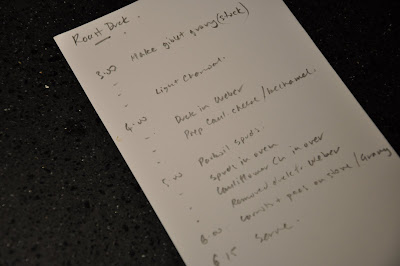 Roast Duck.
3:00 Make giblet gravy (stock)
" Light Charcoal.
4:00 Duck in Weber
" Prep Caul cheese / bechamel.
" Parboil Spuds.
5:00 Spuds in oven
" Cauliflower Ch in oven
" Remove duck fr. Weber
6:00 Carrots + peas on stove / Gravy
6:15 Serve.